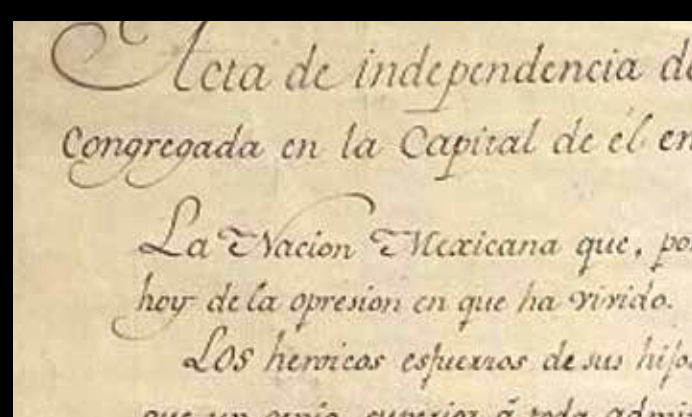 Acta de independencia de
Congregada en la Capital de él en
La Nacion Mexicana que, por
hoy de la opresion en que ha vivido.
Los heroicos esfuerzos de sus hijos
que un genio, superior á toda admi